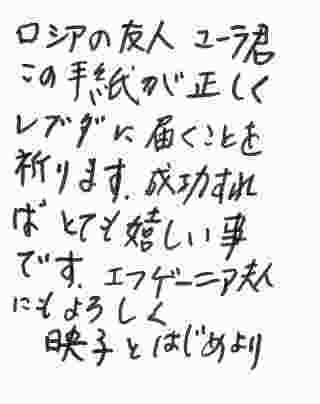 ロシアの友人 ユーラ君
この手紙が正しく
レブダに届くことを
祈ります. 成功すれ
ば とても嬉しい事
です. エフゲーニア夫人
にもよろしく
映子とはじめより